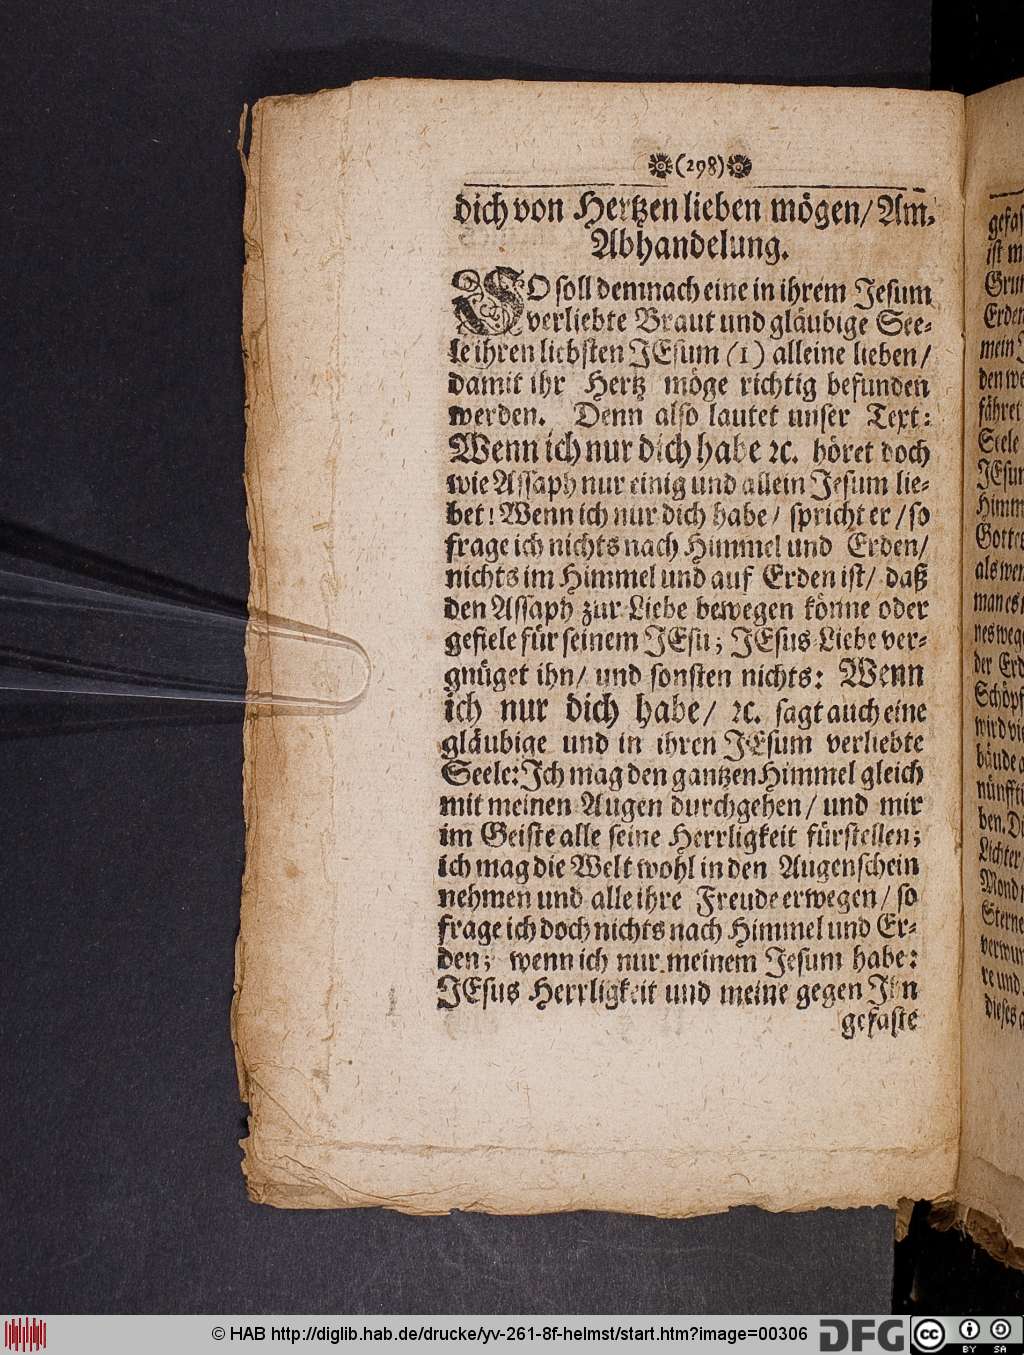 (298)
dich von Hertzen lieben mögen/ Am.
Abhandelung.
SO soll demnach eine in ihrem Jesum
verliebte Braut und gläubige See-
le ihren liebsten JEsum (1) alleine lieben/
damit ihr Hertz möge richtig befunden
werden. Denn also lautet unser Text:
Wenn ich nur dich habe ꝛc. höret doch
wie Assaph nur einig und allein Jesum lie-
bet! Wenn ich nur dich habe/ spricht er/ so
frage ich nichts nach Himmel und Erden/
nichts im Himmel und auf Erden ist/ daß
den Assaph zur Liebe bewegen könne oder
gefiele für seinem JEsu; JEsus Liebe ver-
gnüget ihn/ und sonsten nichts: Wenn
ich nur dich habe/ ꝛc. sagt auch eine
gläubige und in ihren JEsum verliebte
Seele: Jch mag den gantzen Himmel gleich
mit meinen Augen durchgehen/ und mir
im Geiste alle seine Herrligkeit fürstellen;
ich mag die Welt wohl in den Augenschein
nehmen und alle ihre Freude erwegen/ so
frage ich doch nichts nach Himmel und Er-
den; wenn ich nur meinem Jesum habe:
JEsus Herrligkeit und meine gegen Jhn
gefaste
© HAB http://diglib.hab.de/drucke/yv-261-8f-helmst/start.htm?image=00306
DFG
cc
BY SA